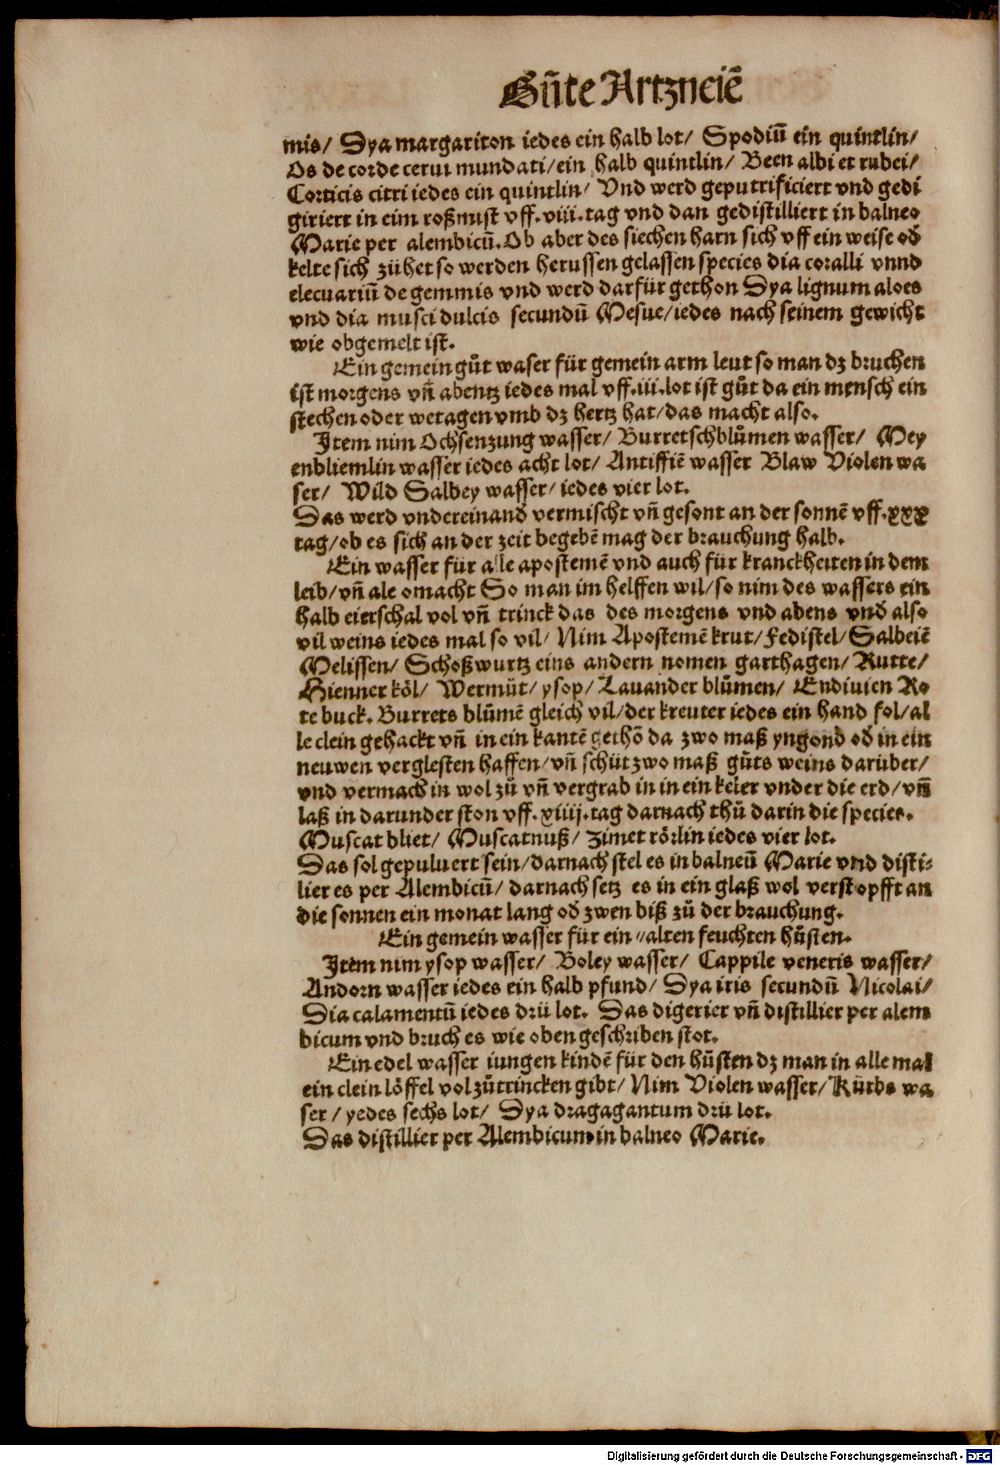 Gůte Artzneiē
mis/ Dya margariton iedes ein halb lot/ Spodiū ein quintlin/
Os de corde cerui mundati/ein halb quintlin/ Been albi et rubei/
Corticis citri iedes ein quintlin/ Vnd werd geputrificiert vnd gedi
giriert in eim roßmist vff.viii.tag vnd dan gedistilliert in balneo
Marie per alembicū.Ob aber des siechen harn sich vff ein weise od̄
kelte sich zühet so werden herussen gelassen species dia coralli vnnd
elecuariū de gemmis vnd werd darfür gethon Dya lignum aloes
vnd dia musci dulcis secundū Mesue/iedes nach seinem gewicht
wie obgemelt ist.
Ein gemein gůt waser für gemein arm leut so man dz bruchen
ist morgens vn̄ abentz iedes mal vff.iii.lot ist gůt da ein mensch ein
stechen oder wetagen vmb dz hertz hat/das macht also.
Item nim Ochsenzung wasser/ Burretschblůmen wasser/ Mey
enbliemlin wasser iedes acht lot/ Antiffiē wasser Blaw Violen wa
ser/ Wild Salbey wasser/iedes vier lot.
Das werd vndereinand vermischt vn̄ gesont an der sonnē vff.xxx
tag/ob es sich an der zeit begebē mag der brauchung halb.
Ein wasser für alle apostemē vnd auch für kranckheiten in dem
leib/vn̄ ale omacht So man im helffen wil/so nim des wassers ein
halb eierschal vol vn̄ trinck das des morgens vnd abens vnd̄ also
vil weins iedes mal so vil/ Nim Apostemē krut/Fedistel/Salbeiē
Melissen/ Schoßwurtz eins andern nomen garthagen/ Rutte/
Hienner köl/ Wermůt/ysop/Lauander blůmen/ Endiuien Ro
te buck.Burrets blůmē gleich vil/der kreuter iedes ein hand fol/al
le clein gehackt vn̄ in ein kantē gethō da zwo maß yngond od̄ in ein
neuwen verglesten haffen/vn̄ schüt zwo maß gůts weins darüber/
vnd vermach in wol zů vn̄ vergrab in in ein keler vnder die erd/vn̄
laß in darunder ston vff.xiiij.tag darnach thů darin die species.
Muscat bliet/ Muscatnuß/ Zimet rörlin iedes vier lot.
Das sol gepuluert sein/darnach stel es in balneū Marie vnd disti-
lier es per Alembicū/darnach setz es in ein glaß wol verstopfft an
die sonnen ein monat lang od̄ zwen biß zů der brauchung.
Ein gemein wasser für ein alten feuchten hůsten.
Item nim ysop wasser/ Boley wasser/ Cappile veneris wasser/
Andorn wasser iedes ein halb pfund/ Dya iris secundū Nicolai/
Dia calamentū iedes drü lot. Das digerier vn̄ distillier per alem
bicum vnd bruch es wie oben geschriben stot.
Ein edel wasser iungen kindē für den hůsten dz man in alle mal
ein clein löffel vol zůtrincken gibt/Nim Violen wasser/Kürbs wa
ser/yedes sechs lot/ Dya dragagantum drü lot.
Das distillier per Alembicum in balneo Marie.
Digitalisierung gefördert durch die Deutsche Forschungsgemeinschaft - DFG